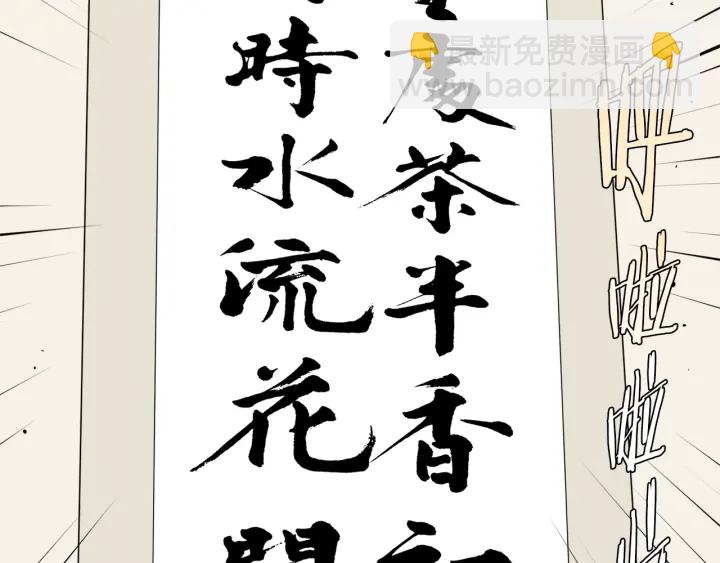 處茶半香初
時水流花開
最新免费漫画
www.baozimh.com
哗
啦
啦
啦